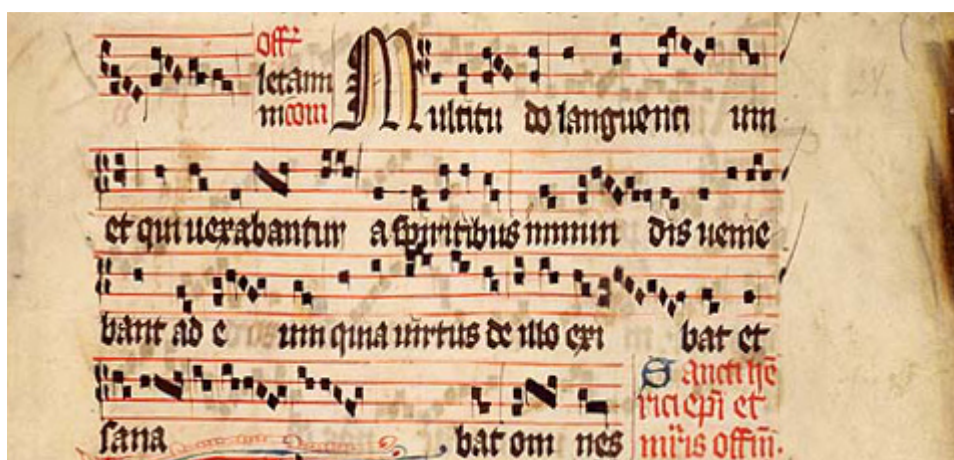 off̄
letami
ni com Multitu do languenti um
et qui uexabantur a spiritibus inmun dis uenie
bant ad e um quia uirtus de illo exi bat et
sana bat om nes
Sancti hē
rici ep̄i et
mr̄is offm̄.